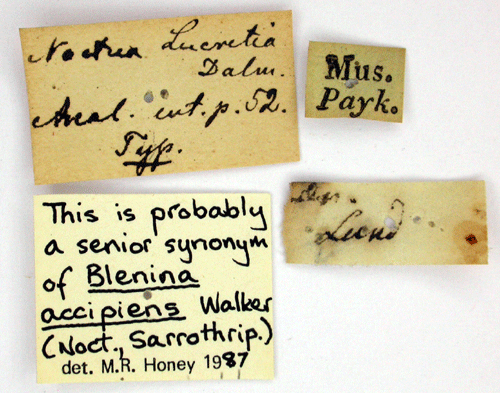 Noctua Lucretia
Dalm.
Anal. ent. p. 52.
Typ.
Mus.
Payk.
Lund
This is probably
a senior synonym
of Blenina
accipiens Walker
(Noct., Sarrothrip.)
det. M.R. Honey 1987